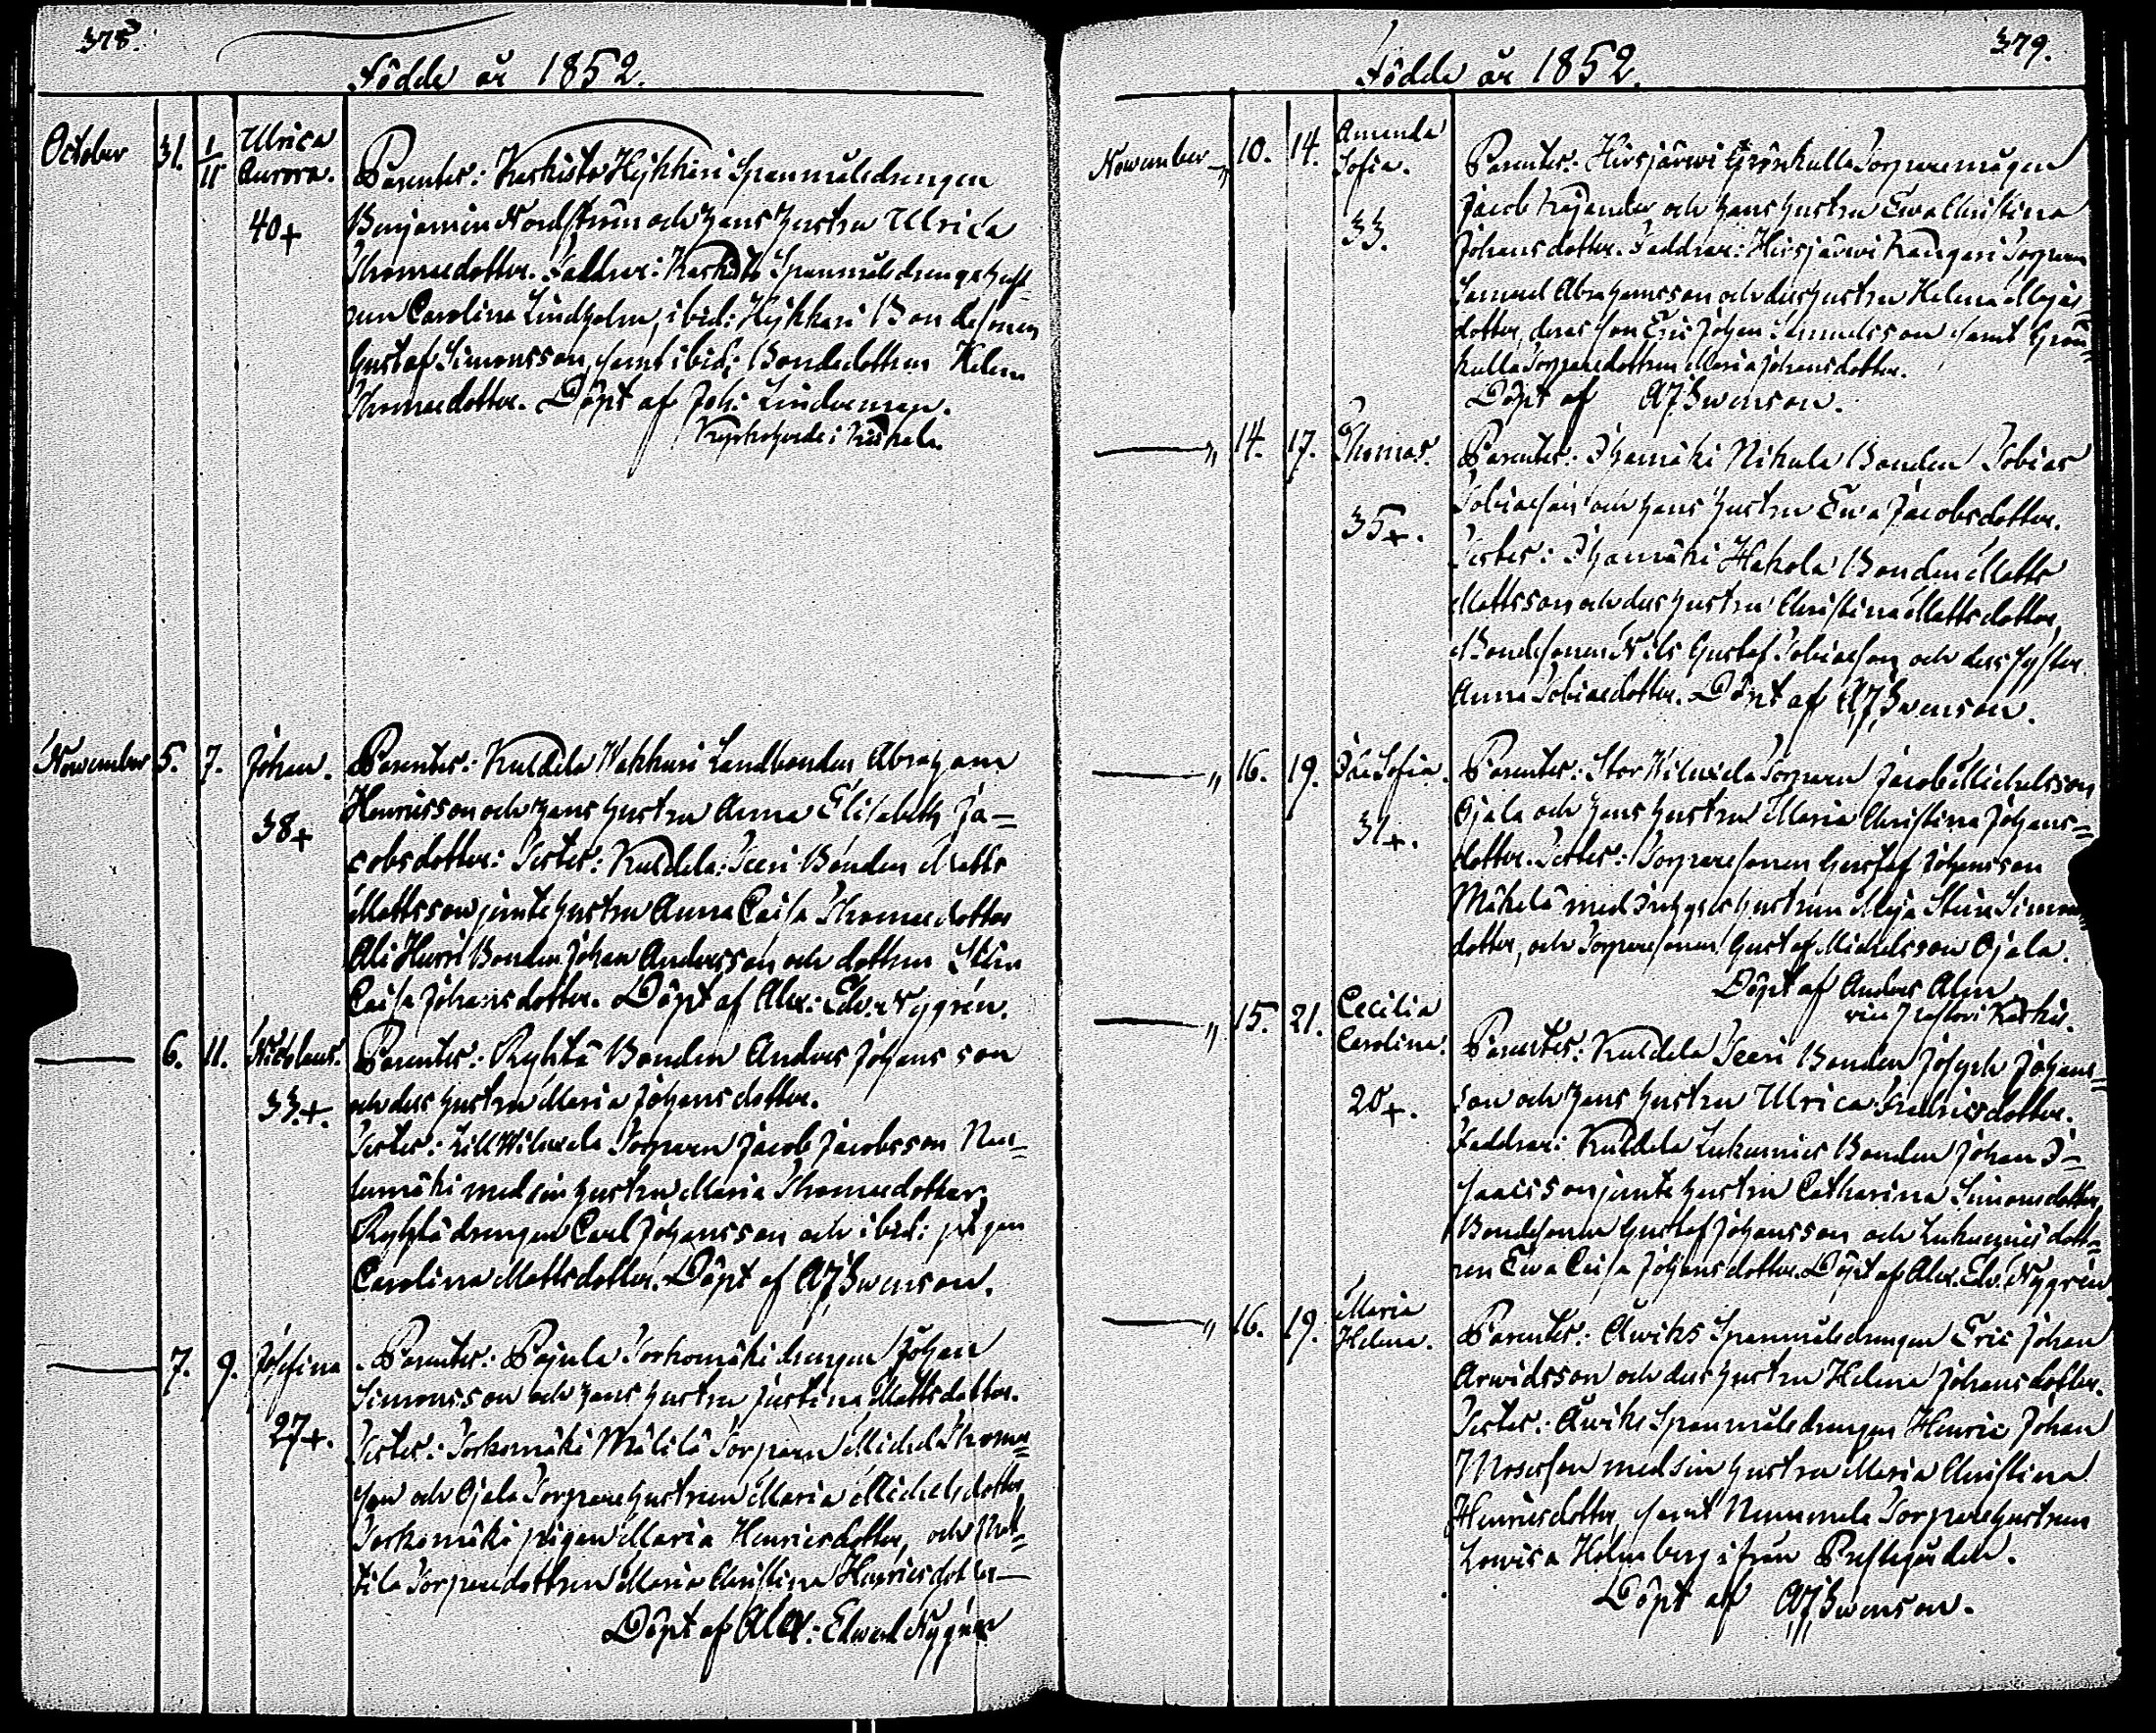 378.
Födde år 1852.
October 31. 1/11 Ulrica
Aurora.
40+
Parenter: Karkisto Hykkäri Spanmålsdrengen
Benjamin Nordström och hans hustru Ulrica
Thomasdotter. Faddrar: Karkisto Spanmålsdrengshust-
run Carolina Lindholm, ibid: Hykkäri Bondesonen
Gustaf Simonsson, samt ibid: Bondedottren Helena
Thomasdotter. Döpt af Joh: Lindroman.
i Kiskala.
November 5. 7. Johan.
38+
Parenter: Kuldela Wakkuri Landbonden Abraham
Henricsson och hans hustru Anna Elisabeth Ja-
cobsdotter: Testes: Kuldela: Iceri Bonden Matts
Mattsson jemte hustru Anna Caisa Thomasdotter
Ali Hurri Bonden Johan Andersson och dottren Stina
Caisa Johansdotter. Döpt af Alex: Edv: Nygrén.
6. 11. Nicolaus.
33.+.
Parenter: Ryhtä Bonden Anders Johansson
och dess hustru Maria Johansdotter.
Testes: Lill Wiluxela Torparen Jacob Jacobsson Num-
menmäki med sin hustru Maria Thomasdotter,
Ryhtä drengen Carl Johansson och ibid: pigan
Carolina Mattsdotter. Döpt af AJSwenson.
7. 9. Josefina
27+.
Parenter: Pajula Torkomäki drengen Johan
Simonsson och hans hustru Justina Mattsdotter.
Testes: Torkomäki Mälilä Torparen Michel Thoma-
son och Ojala Torparehustrun Maria Michelsdotter
Torkomäki pigan Maria Henricsdotter, och
tila Torparedottren Maria Christina Henricsdotter
Döpt af Alex: Edvard Nygrén
379.
Födde år 1852.
November 10. 14. Amanda
Sofia.
33.
Parenter: Hirsjärwi Grönkulla Torparemågen
Jacob Kajander och hans hustru Ewa Christina
Johansdotter. Faddrar: Hirsjärwi Kangari Torparen
Samuel Abrahamsson och dess hustru Helena Majas-
dotter, deras son Eric Johan Samuelsson samt Grön-
kulla Torparedottren Maria Johansdotter.
Döpt af AJSwenson.
14. 17. Thomas.
35+.
Parenter: Ihamäki Nikula Bonden Tobias
Tobiasson och hans hustru Ewa Jacobsdotter.
Testes: Ihamäki Hakola Bonden Matts
Mattsson och dess hustru Christina Mattsdotter,
Bondesonen Nils Gustaf Tobiasson och dess syster
Anna Tobiasdotter. Döpt af AJSwenson.
16. 19. Ida Sofia.
31+.
Parenter: Stor Wiluxela Torparen Jacob Michelsson
Ojala och hans hustru Maria Christina Johans-
dotter. Testes: Torparesonen Gustaf Johansson
Mäkelä med Inhyses hustrun Maja Stina Simons
dotter, och Torparesonen Gustaf Michelsson Ojala.
Döpt af Anders Alm
15. 21. Cecilia
Carolina.
20+.
Parenter: Kuldela Iceri Bonden Joseph Johans-
son och hans hustru Ulrica Fredricsdotter.
Faddrar: Kuldela Lukumies Bonden Johan I-
saacsson jemte hustru Catharina Simonsdotter,
Bondesonen Gustaf Johansson och Lukumies dott-
ren Ewa Caisa Johansdotter. Döpt af Alex. Edv. Nygrén.
16. 19. Maria
Helena.
Parenter: Åwiks Spanmålsdrengen Eric Johan
Arwidsson och dess hustru Helena Johansdotter.
Testes: Åwiks Spanmålsdrengen Henric Johan
Moseson med sin hustru Maria Christina
Henricsdotter, samt Nummela Torparehustrun
Lowisa Holmberg ifrån Prestegården.
Döpt af AJSwenson.